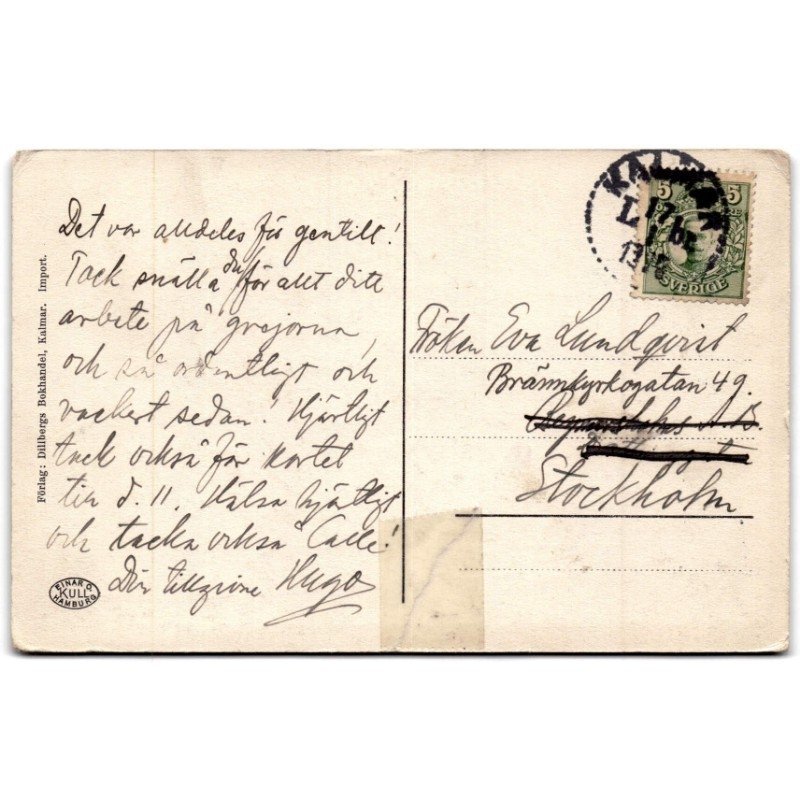 Det var alldeles för gentilt!
Tack snälla du för allt ditt
arbete på grejorna,
och så ordentligt och
vackert sedan! Hjärtligt
tack också för kortet
till d. 11. Hälsa hjärtligt
och tacka också Calle!
Din tillgivne Hugo
Förlag: Dillbergs Bokhandel, Kalmar. Import.
EINAR O.
KULL
HAMBURG
KALMAR
5 5
SVERIGE
Fröken Eva Lundqvist
Brännkyrkogatan 49.
Stockholm